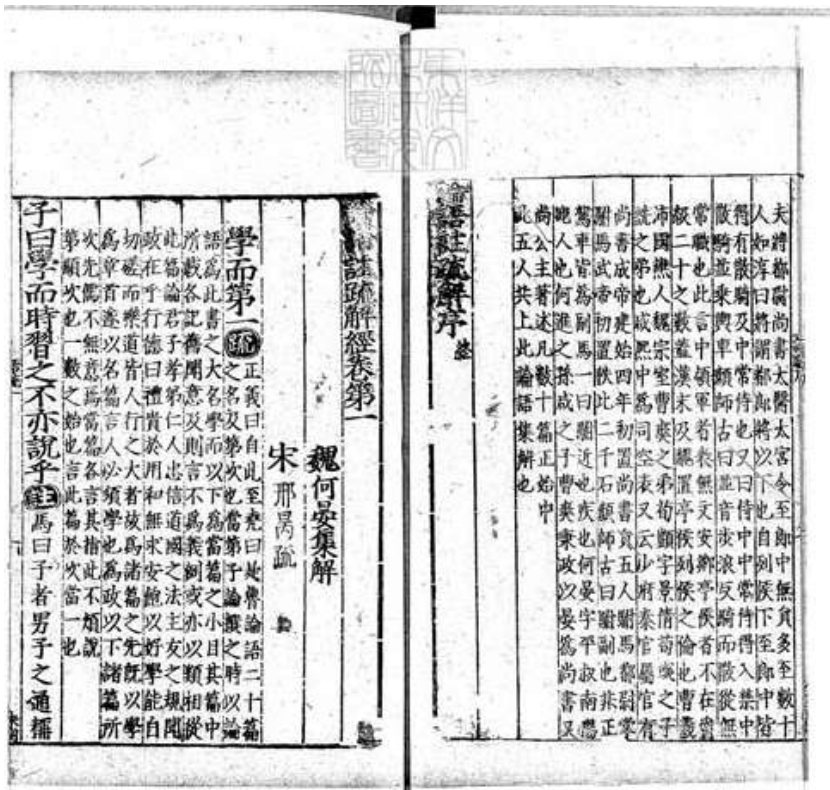 夫將都尉尚書太醫太官令至郎中無員多至數十
人如淳曰將謂都郎將以下也自列侯下至郎中皆
得有散騎及中常侍也又曰侍中中常侍得入禁中
散騎並乘輿車顏師古曰並音步浪反騎而散從無
常職也此言中領軍者表無文安鄉亭侯者不在爵
級二十之數蓋漢末及魏置亭侯列侯之倫也曹羲
沛國譙人魏宗室曹爽之弟荀顗字景倩荀彧之子
詵之弟也咸熙中為司空表又云少府秦官屬官有
尚書成帝建始四年初置尚書員五人駙馬都尉掌
駙馬武帝初置秩比二千石顏師古曰駙副也非正
駕車皆為副馬一曰駙近也疾也何晏字平叔南陽
宛人也何進之孫咸之子曹爽秉政以晏為尚書又
尚公主著述凡數十篇正始中
此五人共上此論語集解也
論語註疏解序 終
註疏解經卷第一
魏何晏集解
宋邢昺疏
學而第一 疏 正義曰自此至堯曰是魯論語二十篇
之名及第次也當弟子論撰之時以論
語為此書之大名學而以下為當篇之小目其篇中
所載各記舊聞意及則言不為義例或亦以類相從
此篇論君子孝弟仁人忠信道國之法主友之規聞
政在乎行德由禮貴於用和無求安飽以好學能自
切磋而樂道皆人行之大者故為諸篇之先既以學
為章首遂以名篇言人必須學也為政以下諸篇所
次先儒不無意焉當篇各言其指此不煩說
第順次也一數之始也言此篇於次當一也
子曰學而時習之不亦說乎 註 馬曰子者男子之通稱